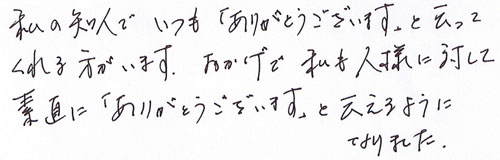 私の知人で いつも「ありがとうございます」と云って
くれる方がいます. おかげで 私も人様に対して
素直に「ありがとうございます」と云えるように
なりました.